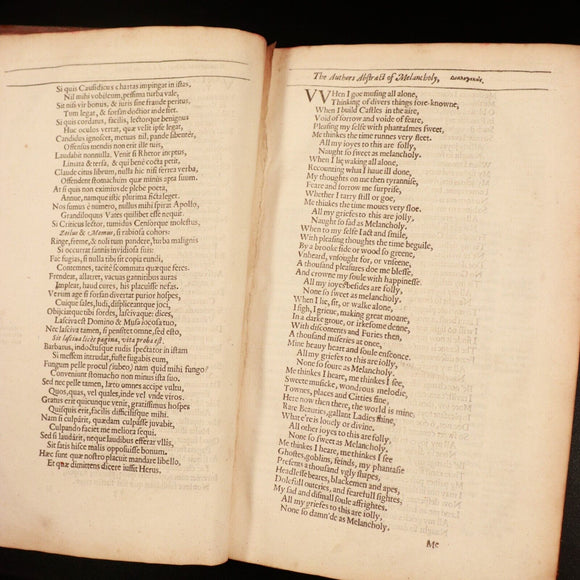 Si quis Causidicus chartas impingat in istas,
Nil mihi vobiscum, pessima turba vale,
Sit nisi vir bonus, & juris sine fraude peritus,
Tum legat, & forsan doctior inde siet.
Si quis cordatus, facilis, lectorque benignus
Huc oculos vertat, quæ velit ipse legat.
Candidus ignoscet, metuas nil, pande libenter,
Offensus mendis non erit ille tuis,
Laudabit nonnulla. Venit si Rhetor ineptus,
Limata & tersa, & qui benè cocta petit.
Claude citus librum, nulla hic nisi ferrea verba,
Offendent stomachum quæ minus apta suum.
At si quis non eximius de plebe poeta,
Annue, namque istic plurima ficta leget.
Nos sumus è numero, nullus mihi spirat Apollo,
Grandiloquus Vates quilibet esse nequit.
Si Criticus lector, tumidus Censorque molestus,
Zoilus & Momus, si rabiosa cohors:
Ringe, freme, & noli tum pandere, turba malignis
Si occurrat sannis invidiosa suis:
Fac fugias, si nulla tibi sit copia eundi,
Contemnes, tacitè scommata quæque feres.
Frendeat, allatret, vacuas gannitibus auras
Impleat, haud cures, his placuisse nefas.
Verum age si forsan divertat purior hospes,
Cuique sales, ludi, displiceantque joci,
Objiciatque tibi sordes, lascivaque: dices,
Lasciva est Domino & Musa jocosa tuo,
Nec lasciva tamen, si pensitet omne, sed esto,
Sit lasciva licet pagina, vita proba est.
Barbarus, indoctusque rudis spectator in istam
Si messem intrudat, fuste fugabis eum,
Fungum pelle procul (jubeo) nam quid mihi fungo?
Conveniunt stomacho non minus ista suo.
Sed nec pelle tamen, læto omnes accipe vultu,
Quos, quas, vel quales, inde vel unde viros.
Gratus erit quicunque venit, gratissimus hospes
Quisquis erit, facilis difficilisque mihi.
Nam si culpârit, quædam culpasse juvabit,
Culpando faciet me meliora sequi.
Sed si laudârit, neque laudibus efferar ullis,
Sit satis hisce malis opposuisse bonum.
Hæc sunt quæ nostro placuit mandare libello,
Et quæ dimittens dicere jussit Herus.
The Authors Abstract of Melancholy, Διαλογικῶς.
VVHen I goe musing all alone,
Thinking of divers things fore-knowne,
When I build Castles in the aire,
Void of sorrow and voide of feare,
Pleasing my selfe with phantasmes sweet,
Me thinkes the time runnes very fleet.
All my joyes to this are folly,
Naught so sweet as melancholy.
When I lie waking all alone,
Recounting what I have ill done,
My thoughts on me then tyrannise,
Feare and sorrow me surprise,
Whether I tarry still or goe,
Me thinkes the time moues very sloe.
All my griefes to this are jolly,
Naught so sad as Melancholy.
When to my selfe I act and smile,
With pleasing thoughts the time beguile,
By a brooke side or wood so greene,
Vnheard, vnsought for, or vnseene,
A thousand pleasures doe me blesse,
And crowne my soule with happinesse.
All my joyes besides are folly,
None so sweet as melancholy.
When I lie, sit, or walke alone,
I sigh, I grieue, making great moane,
In a darke groue, or irkesome denne,
With discontents and Furies then,
A thousand miseries at once,
Mine heavy heart and soule ensconce.
All my griefes to this are jolly,
None so soure as Melancholy.
Me thinkes I heare, me thinkes I see,
Sweete musicke, wondrous melodie,
Townes, places and Citties fine,
Here now then there, the world is mine,
Rare Beauties, gallant Ladies shine,
What e're is lovely or divine.
All other joyes to this are folly,
None so sweet as Melancholy.
Me thinkes I heare, me thinkes I see
Ghostes, goblins, feinds, my phantasie
Presents a thousand vgly shapes,
Headlesse beares, blackemen and apes,
Dolefull outcries, and fearefull sightes,
My sad and dismall soule affrightes.
All my griefes to this are jolly,
None so damn'de as Melancholy.
Me